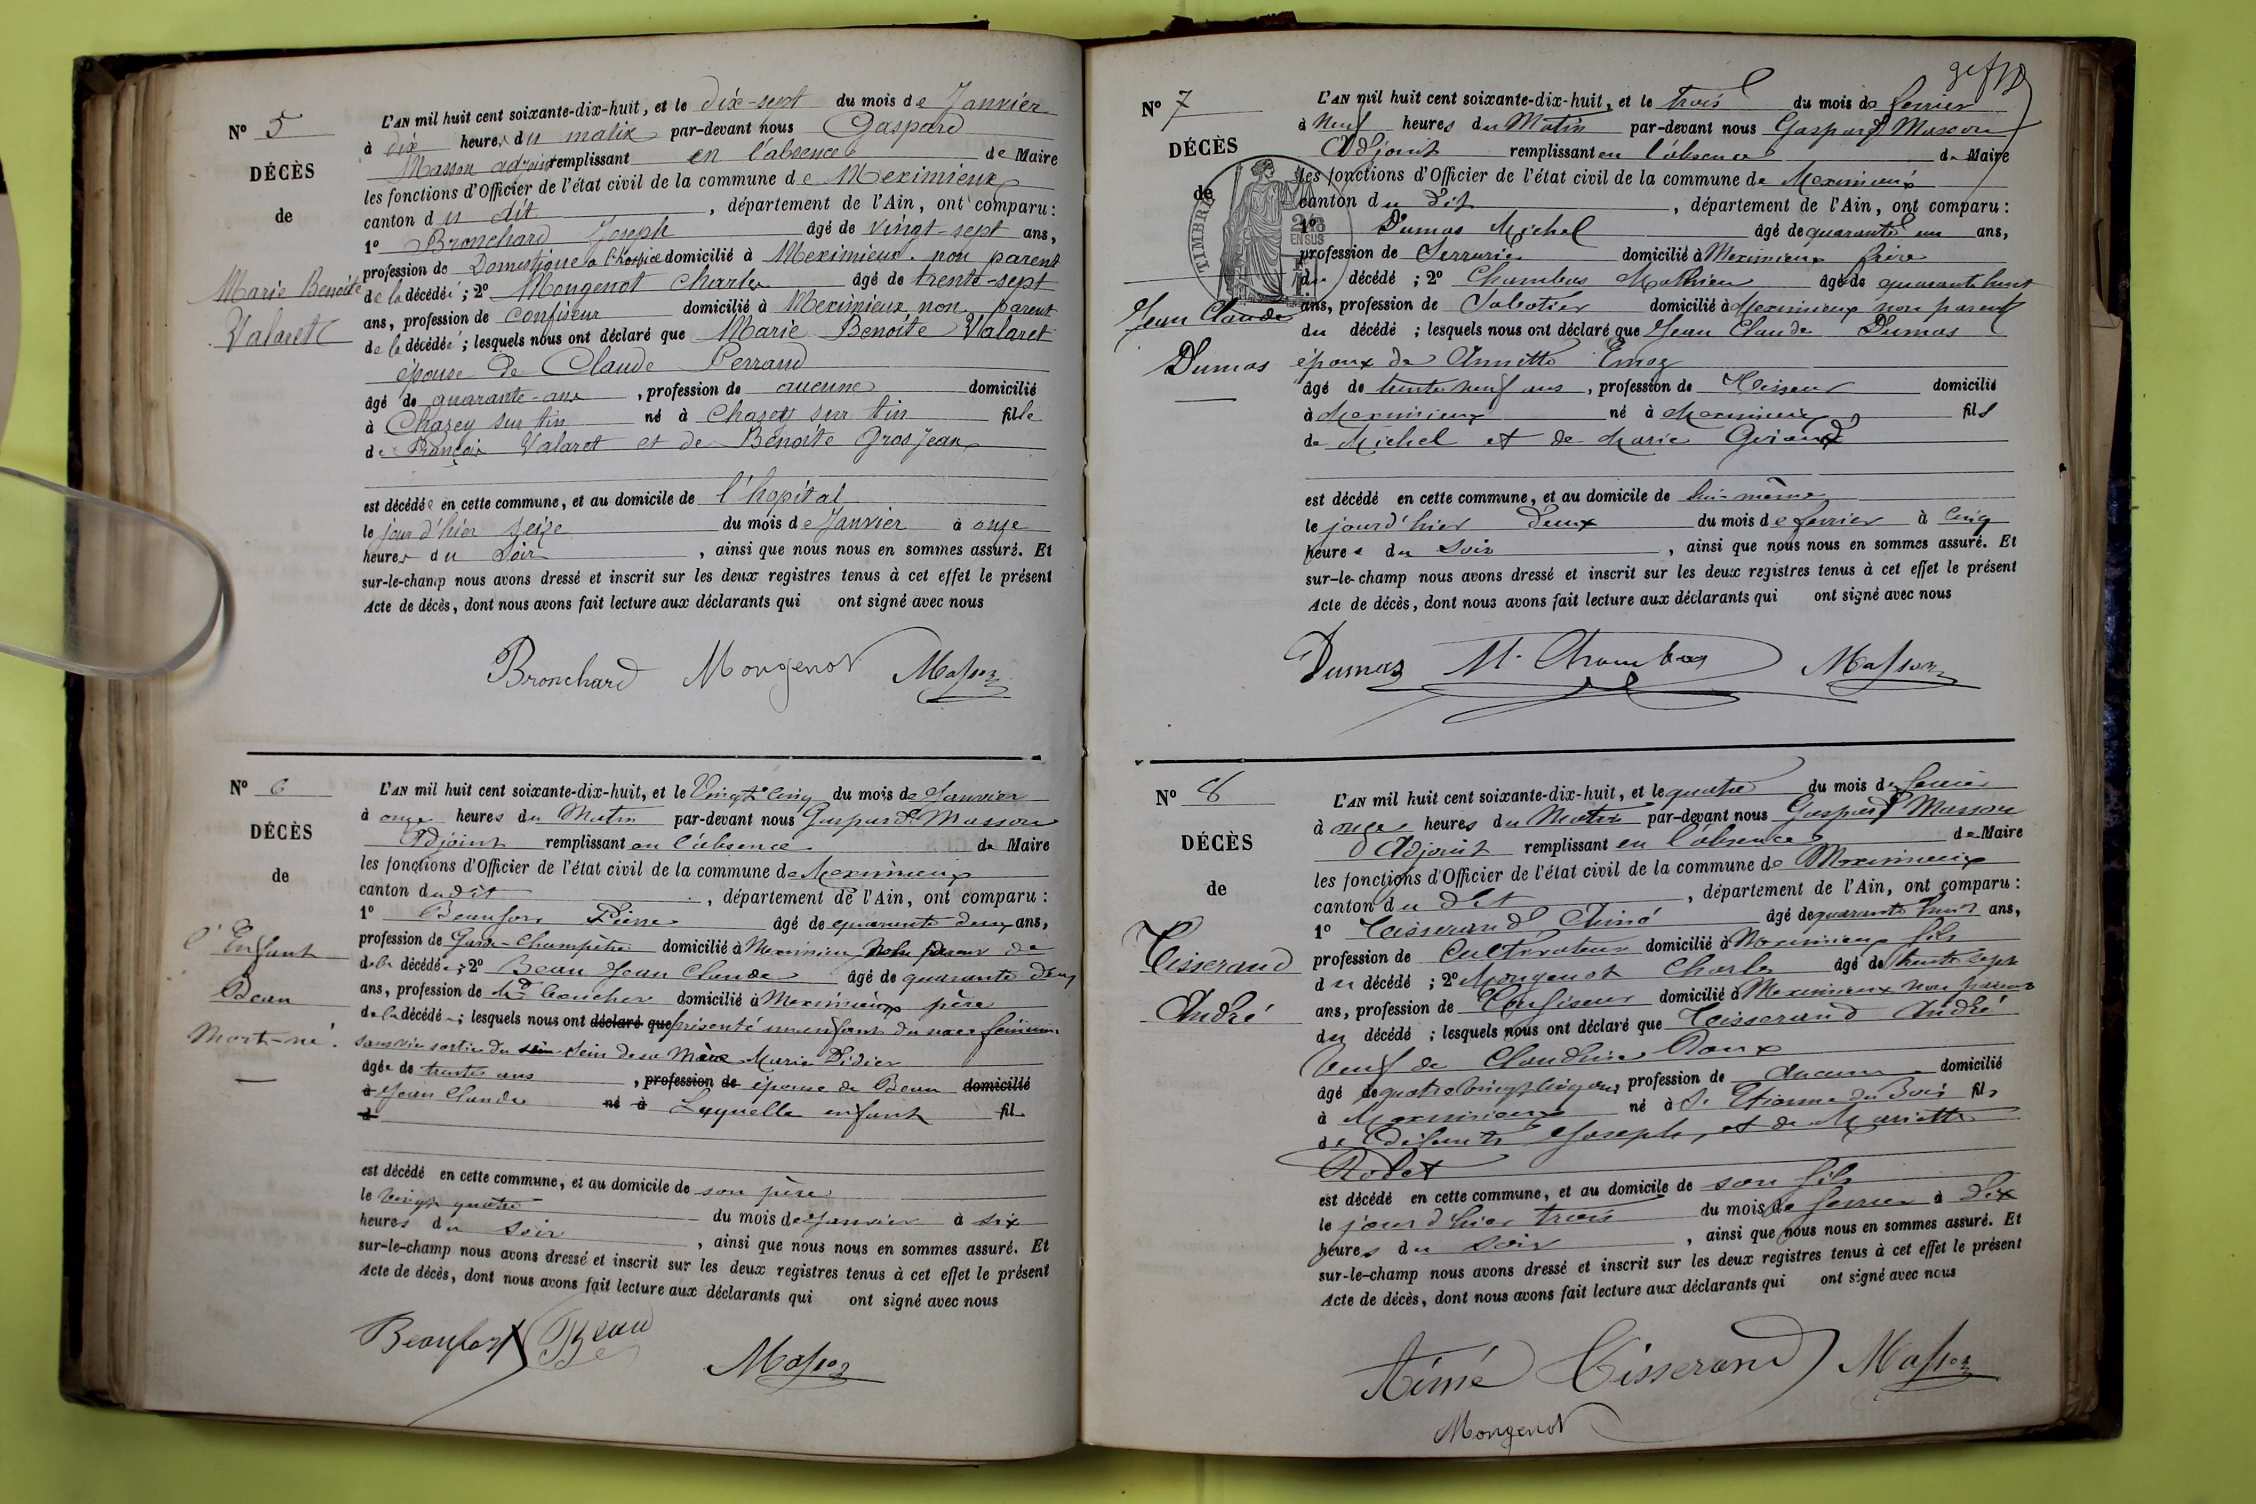 N° 5
DÉCÈS
de
Marie Benoîte
Valaret
L'AN mil huit cent soixante-dix-huit, et le dix-sept du mois de Janvier
à dix heures du matin par-devant nous Gaspard
Masson adjoint remplissant en l'absence de Maire
les fonctions d'Officier de l'état civil de la commune de Meximieux
canton du dit, département de l'Ain, ont comparu :
1° Bronchard Joseph âgé de vingt-sept ans,
profession de Domestique à l'hospice domicilié à Meximieux non parent
de la décédée ; 2° Mongenot Charles âgé de trente-sept
ans, profession de confiseur domicilié à Meximieux, non parent
de la décédée ; lesquels nous ont déclaré que Marie Benoîte Valaret
épouse de Claude Perraud
âgé de quarante-ans, profession de aucune domicilié
à Chazey sur Ain né à Chazey sur Ain fille
de François Valaret et de Benoîte Grosjean
est décédée en cette commune, et au domicile de l'hôpital
le jour d'hier seize du mois de Janvier à onze
heures du soir, ainsi que nous nous en sommes assuré. Et
sur-le-champ nous avons dressé et inscrit sur les deux registres tenus à cet effet le présent
Acte de décès, dont nous avons fait lecture aux déclarants qui ont signé avec nous
Bronchard Mongenot Masson
N° 6
DÉCÈS
de
l'Enfant
Beau
Mort-né.
L'AN mil huit cent soixante-dix-huit, et le Vingt cinq du mois de Janvier
à onze heures du Matin par-devant nous Gaspard Masson
Adjoint remplissant en l'absence de Maire
les fonctions d'Officier de l'état civil de la commune de Meximieux
canton du dit, département de l'Ain, ont comparu :
1° Beaufort Pierre âgé de quarante deux ans,
profession de Garde-Champêtre domicilié à Meximieux non parent de
de la décédée ; 2° Beau Jean Claude âgé de quarante deux
ans, profession de Md boucher domicilié à Meximieux père
de la décédée ; lesquels nous ont déclaré que présenté un enfant du sexe féminin
sans vie sortie du sein de sa Mère Marie Didier
âgée de trente ans, profession de épouse de Beau domicilié
à Jean Claude né à Laquelle enfant fil
d
est décédé en cette commune, et au domicile de son père
le vingt quatre du mois de Janvier à six
heures du soir, ainsi que nous nous en sommes assuré. Et
sur-le-champ nous avons dressé et inscrit sur les deux registres tenus à cet effet le présent
Acte de décès, dont nous avons fait lecture aux déclarants qui ont signé avec nous
Beaufort Beau
Masson
N° 7
DÉCÈS
de
TIMBRE
EN SUS
Jean Claude
Dumas
L'AN mil huit cent soixante-dix-huit, et le trois du mois de fevrier
à Neuf heures du Matin par-devant nous Gaspard Masson
Adjoint remplissant en l'absence de Maire
les fonctions d'Officier de l'état civil de la commune de Meximieux
canton du dit, département de l'Ain, ont comparu :
1° Dumas Michel âgé de quarante un ans,
profession de Serrurier domicilié à Meximieux frère
du décédé ; 2° Chambas Mathieu âgé de quarante huit
ans, profession de Sabotier domicilié à Meximieux non parent
du décédé ; lesquels nous ont déclaré que Jean Claude Dumas
époux de Annette
âgé de trente neuf ans, profession de Tisseur domicilié
à Meximieux né à Meximieux fils
de Michel et de Marie Giraud
est décédé en cette commune, et au domicile de lui-même
le jour d'hier deux du mois de fevrier à cinq
heures du soir, ainsi que nous nous en sommes assuré. Et
sur-le-champ nous avons dressé et inscrit sur les deux registres tenus à cet effet le présent
Acte de décès, dont nous avons fait lecture aux déclarants qui ont signé avec nous
Dumas M. Chambas Masson
N° 8
DÉCÈS
de
Tisserand
André
L'AN mil huit cent soixante-dix-huit, et le quatre du mois de fevrier
à onze heures du Matin par-devant nous Gaspard Masson
Adjoint remplissant en l'absence de Maire
les fonctions d'Officier de l'état civil de la commune de Meximieux
canton du dit, département de l'Ain, ont comparu :
1° Tisserand Aimé âgé de quarante huit ans,
profession de Cultivateur domicilié à Meximieux fils
du décédé ; 2° Mongenot Charles âgé de trente sept
ans, profession de Confiseur domicilié à Meximieux non parent
du décédé ; lesquels nous ont déclaré que Tisserand André
Veuf de Claudine Roux
âgé de quatre vingt ans, profession de Aucune domicilié
à Meximieux né à St Etienne du Bois fils
de défunts Joseph, et de Mariette
Rodet
est décédé en cette commune, et au domicile de son fils
le jour d'hier trois du mois de fevrier à dix
heures du soir, ainsi que nous nous en sommes assuré. Et
sur-le-champ nous avons dressé et inscrit sur les deux registres tenus à cet effet le présent
Acte de décès, dont nous avons fait lecture aux déclarants qui ont signé avec nous
Aimé Tisserand Masson
Mongenot